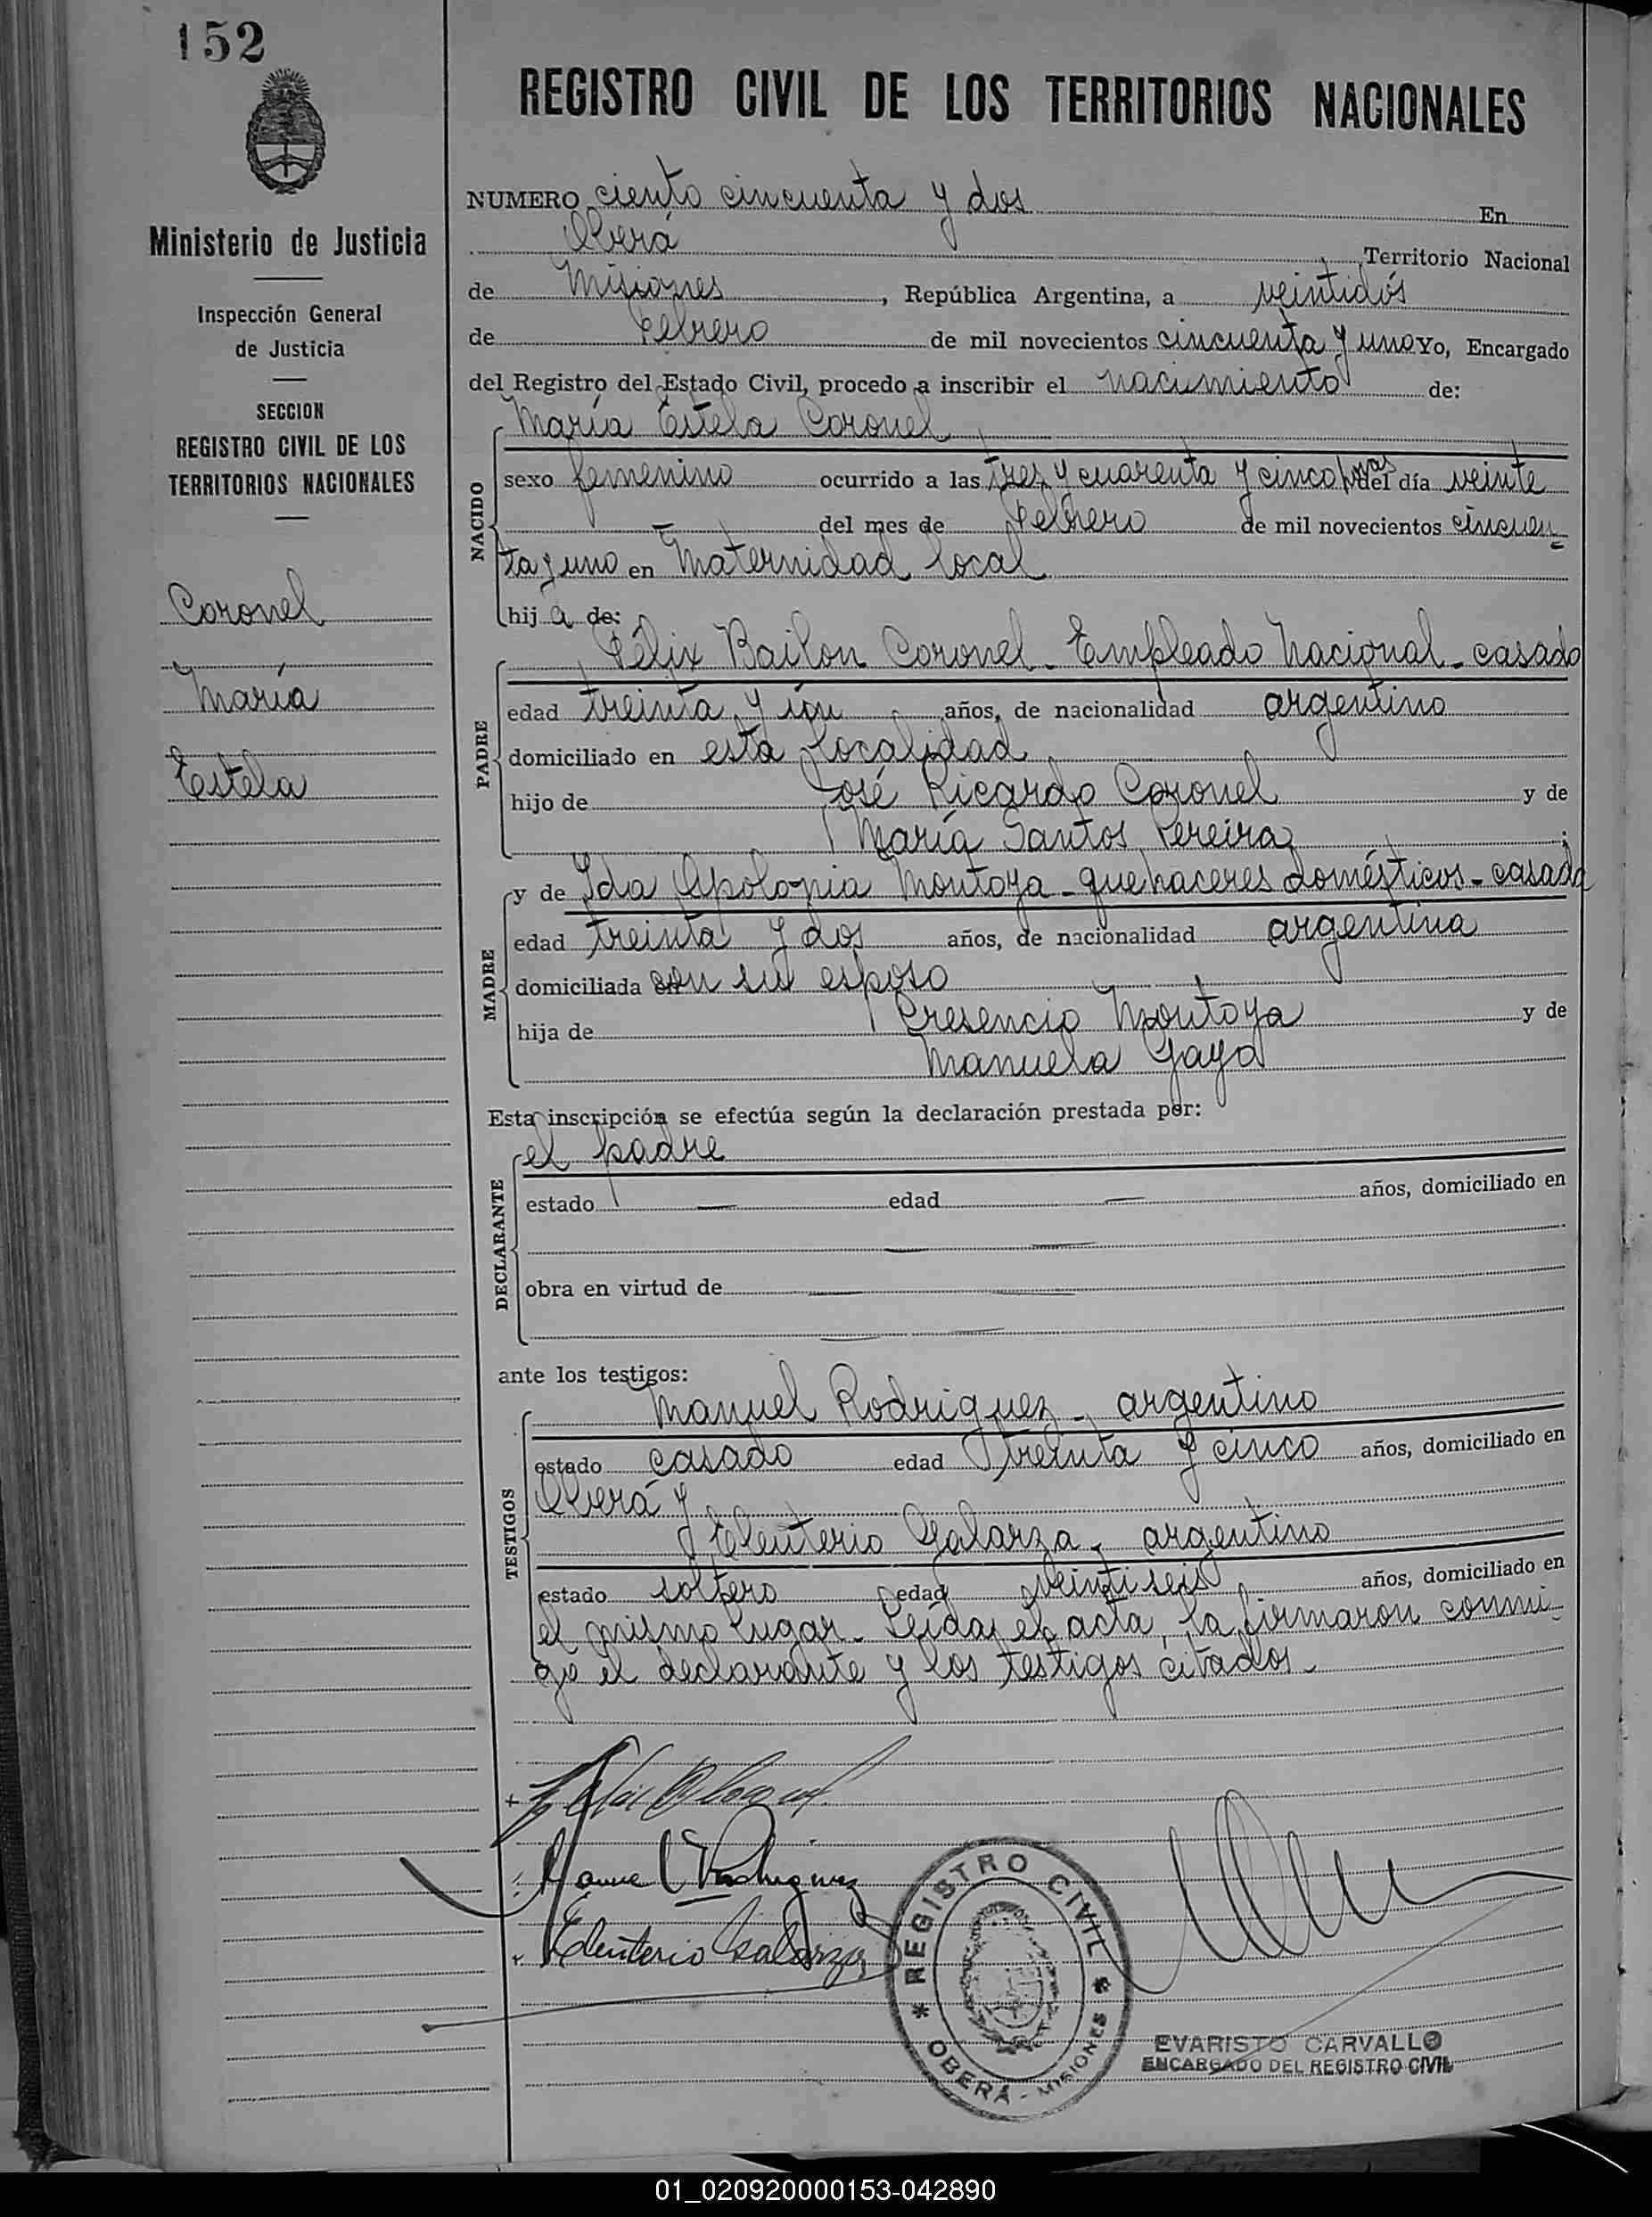 152
Ministerio de Justicia
Inspección General
de Justicia
SECCION
REGISTRO CIVIL DE LOS
TERRITORIOS NACIONALES
Coronel
María
Estela
REGISTRO CIVIL DE LOS TERRITORIOS NACIONALES
NUMERO ciento cincuenta y dos En
Oberá Territorio Nacional
de Misiones, República Argentina, a veintidós
de Febrero de mil novecientos cincuenta y uno Yo, Encargado
del Registro del Estado Civil, procedo a inscribir el nacimiento de:
María Estela Coronel
NACIDO
sexo femenino ocurrido a las tres y cuarenta y cinco horas del día veinte
— del mes de Febrero de mil novecientos cincuen-
ta y uno en Maternidad local
hija de:
Félix Bailon Coronel - Empleado Nacional - casado
PADRE
edad treinta y ún años, de nacionalidad argentino
domiciliado en esta localidad
hijo de José Ricardo Coronel y de
María Santos Pereira;
y de Ida Apolonia Montoya - quehaceres domésticos - casada
MADRE
edad treinta y dos años, de nacionalidad argentina
domiciliada con su esposo
hija de Cresencio Montoya y de
Manuela Gaya
Esta inscripción se efectúa según la declaración prestada por:
el padre
DECLARANTE
estado — edad — años, domiciliado en
— —
obra en virtud de — —
— —
ante los testigos:
Manuel Rodriguez - argentino
TESTIGOS
estado casado edad treinta y cinco años, domiciliado en
Oberá y
Eleuterio Galarza - argentino
estado soltero edad veintiseis años, domiciliado en
el mismo lugar. Leída el acta, la firmaron conmi-
go el declarante y los testigos citados.
Manuel Rodriguez
Eleuterio Galarza
REGISTRO CIVIL
OBERÁ - MISIONES
EVARISTO CARVALLO
ENCARGADO DEL REGISTRO CIVIL
01_020920000153-042890